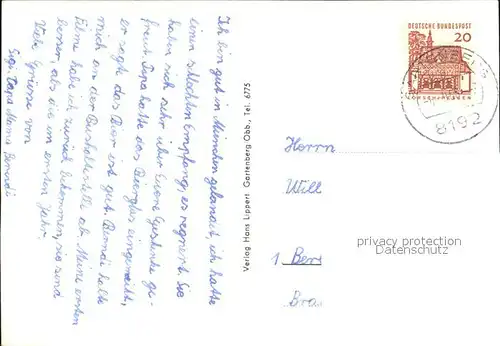 Ich bin gut in München gelandet, ich hatte
einen schlechten Empfang, es regnet. Sie
haben sich sehr über Eure Geschenke ge-
freut. Papa hatte das Bierglas eingeweiht,
er sagte das Bier ist gut. Bärndi holte
mich an der Bushaltestelle ab. Meine ersten
Filme habe ich zurück bekommen, sie sind
besser, als die im ersten Jahr.
Viele Grüsse von
Papa Mama
Verlag Hans Lippert, Gartenberg Obb., Tel. 6775
DEUTSCHE BUNDESPOST
20
LORSCH/HESSEN
8192
Herrn
Will
1 Ber
Bra
privacy protection
Datenschutz